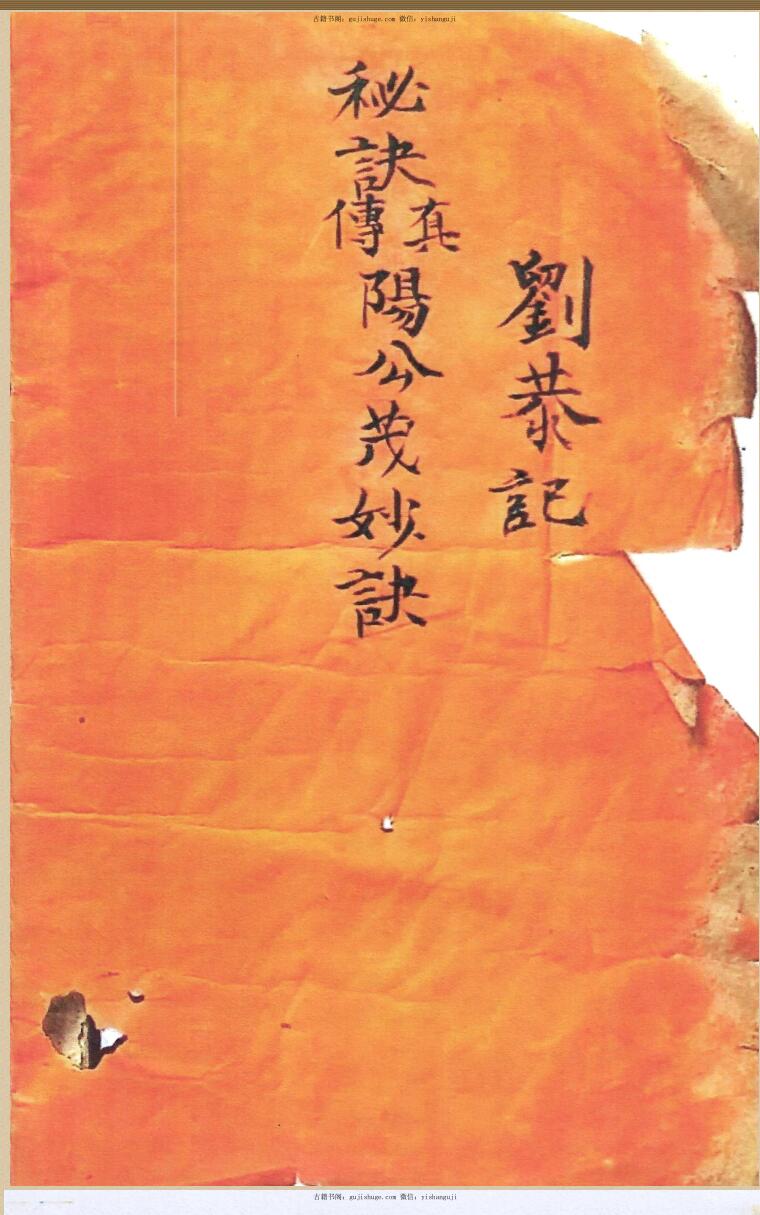 古籍书阁：gujishuge.com 微信：yishanguji
劉恭記
秘訣真傳陽公茂妙訣
古籍书阁：gujishuge.com 微信：yishanguji